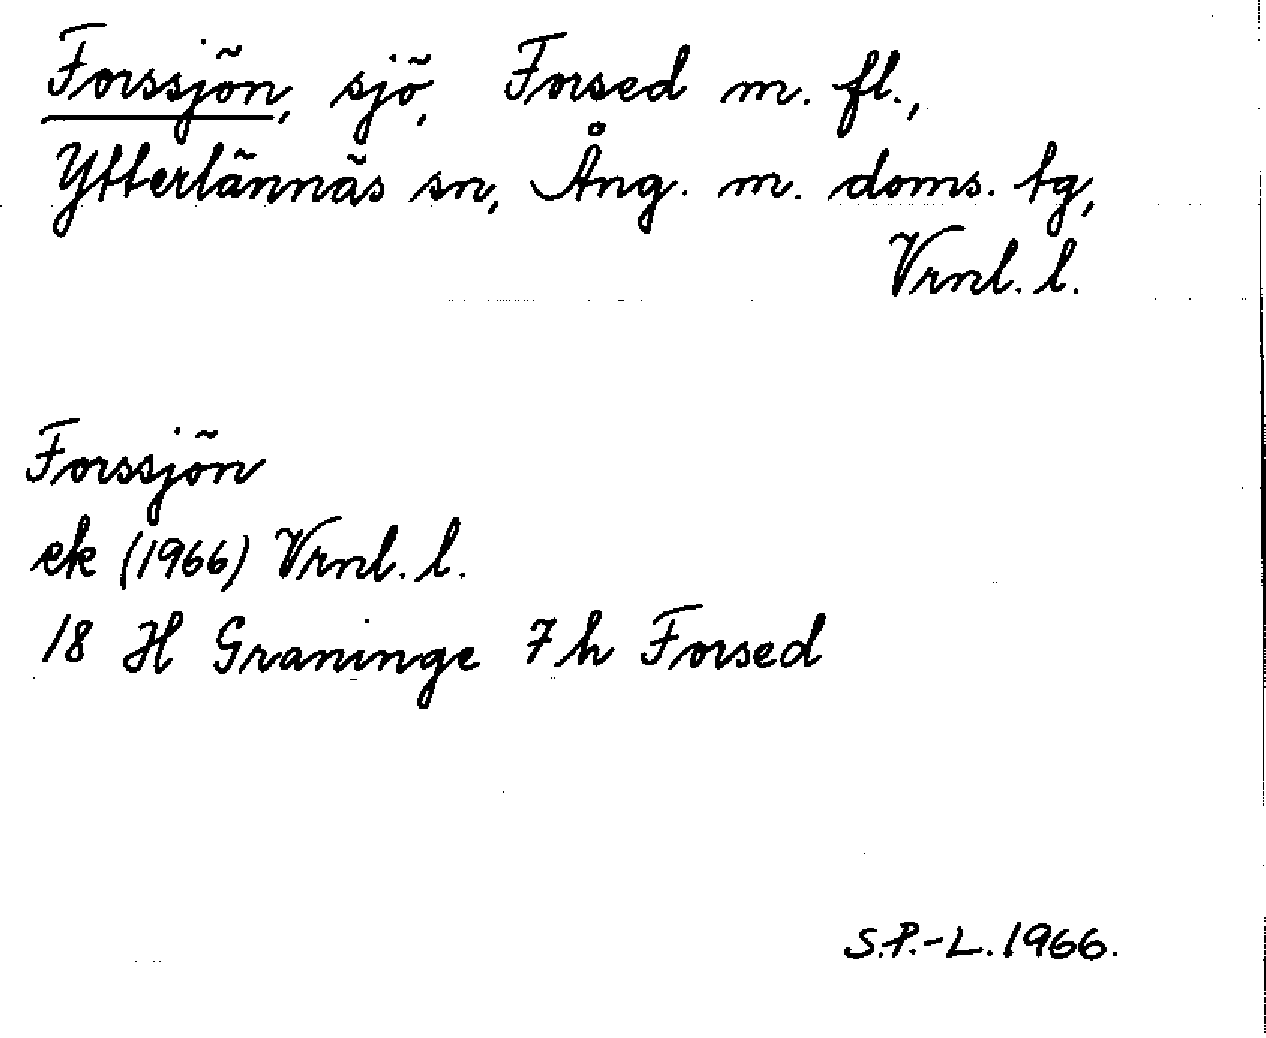 Forssjön, sjö, Forsed m. fl.,
Ytterlännäs sn, Ång. m. doms. tg,
Vrnl. l.
Forssjön
ek (1966) Vrnl. l.
18 H Graninge 7 h Forsed
S.P.-L. 1966.